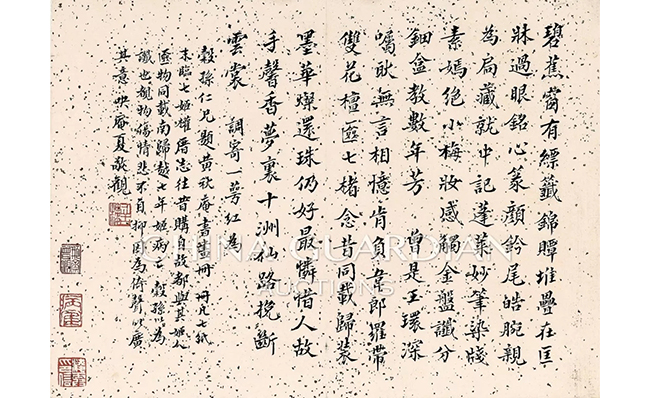 碧蕉窗有縹籤錦贉堆疊在匡
牀過眼銘心篆顏鈐尾皓腕親
為局藏就中記蓬萊妙筆染牋
素嫣絕小梅妝感觸金盤讖分
鈿盒教數年芳 曾是玉環深
囑耿無言相憶肯負吾郎羅帶
雙花檀匣七楮念昔同載歸裝
墨華燦還珠仍好最憐惜人故
手馨香夢裏十洲仙路挽斷
雲裳 調寄一萼紅為
縠孫仁兄題黃秋庵書畫冊 冊凡七紙
末臨七姬權厝志往昔購自故都與其姬人
匳物同載南歸越七年姬病亡 縠孫以為
讖也覩物傷情悲不自抑因為倚聲以廣
其意 映庵夏敬觀
CHINA GUARDIAN
AUCTIONS